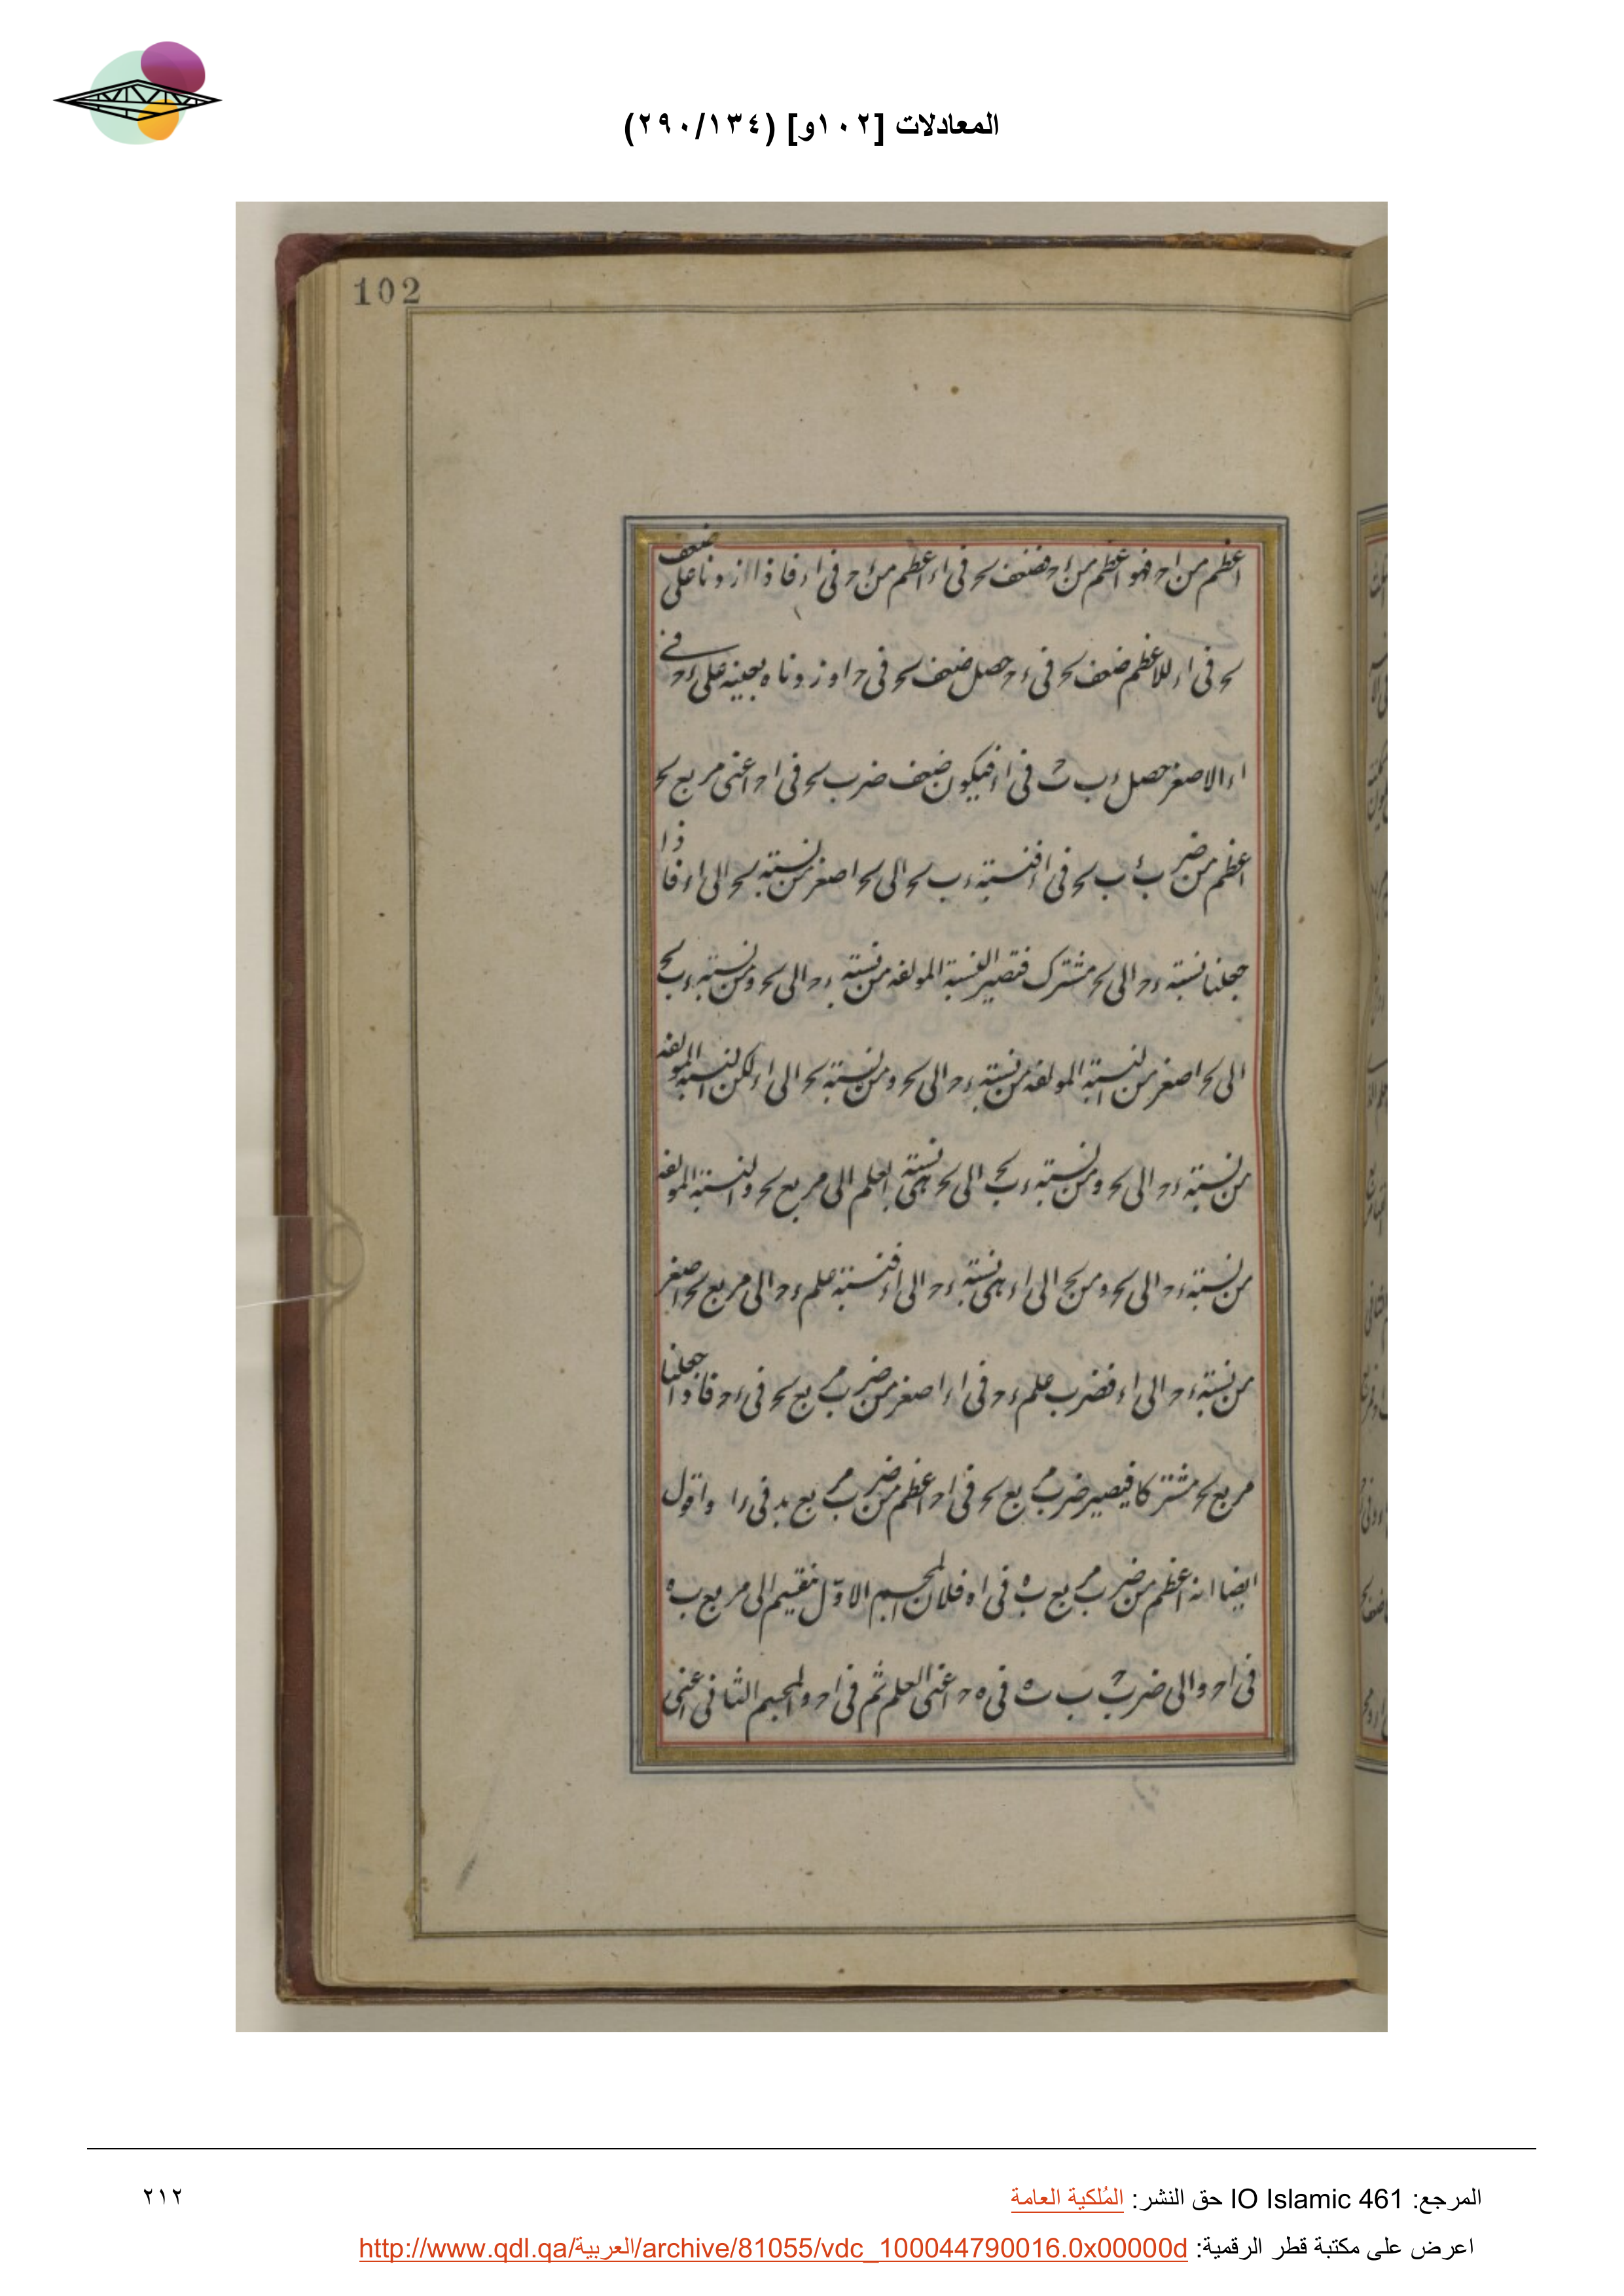 المعادلات [١٠٢و] (٢٩٠/١٣٤)
102
اعظم من اح فهو اعظم من اح فضعف ىح فى اء اعظم من ءح فى اء فاذا زدنا على ضعف
ىح فى اء للاعظم ضعف ىح فى ءح حصل ضعف ىح فى اح وزدناه بعينه على ءح فى
اء الاصغر حصل ءب ىح فى اء فيكون ضعف ضرب ىح فى اح اعنى مربع ىح
اعظم من ضرب ءب ىح فى اء فنسبة ءب ىح الى ىح اصغر من نسبة ىح الى اء فاذا
جعلنا نسبة ءح الى ىح مشترك فتصير النسبة المولفه من نسبة ءح الى ىح ومن نسبة ءب ىح
الى ىح اصغر من النسبة المولفه من نسبة ءح الى ىح ومن نسبة ىح الى اء لكن النسبة المولفه
من نسبة ءح الى ىح ومن نسبة ءب ىح الى ىح هى نسبة العلم الى مربع ىح والنسبة المولفه
من نسبة ءح الى ىح ومن ىح الى اء هى نسبة ءح الى اء فنسبة علم ءح الى مربع ىح اصغر
من نسبة ءح الى اء فضرب علم ءح فى اء اصغر من ضرب مربع ىح فى ءح فاذا جعلنا
مربع ىح مشتركا فيصير ضرب مربع ىح فى اح اعظم من ضرب مربع بد فى دا واقول
ايضا انه اعظم من ضرب مربع ب ه فى اه فلان المجسم الاول ينقسم الى مربع ب ه
فى اح والى ضرب ب ح ب ه فى ه ح اعنى العلم ثم فى اح والمجسم الثانى اعنى
المرجع: IO Islamic 461 حق النشر: المُلكية العامة
٢١٢
اعرض على مكتبة قطر الرقمية: http://www.qdl.qa/العربية/archive/81055/vdc_100044790016.0x00000d